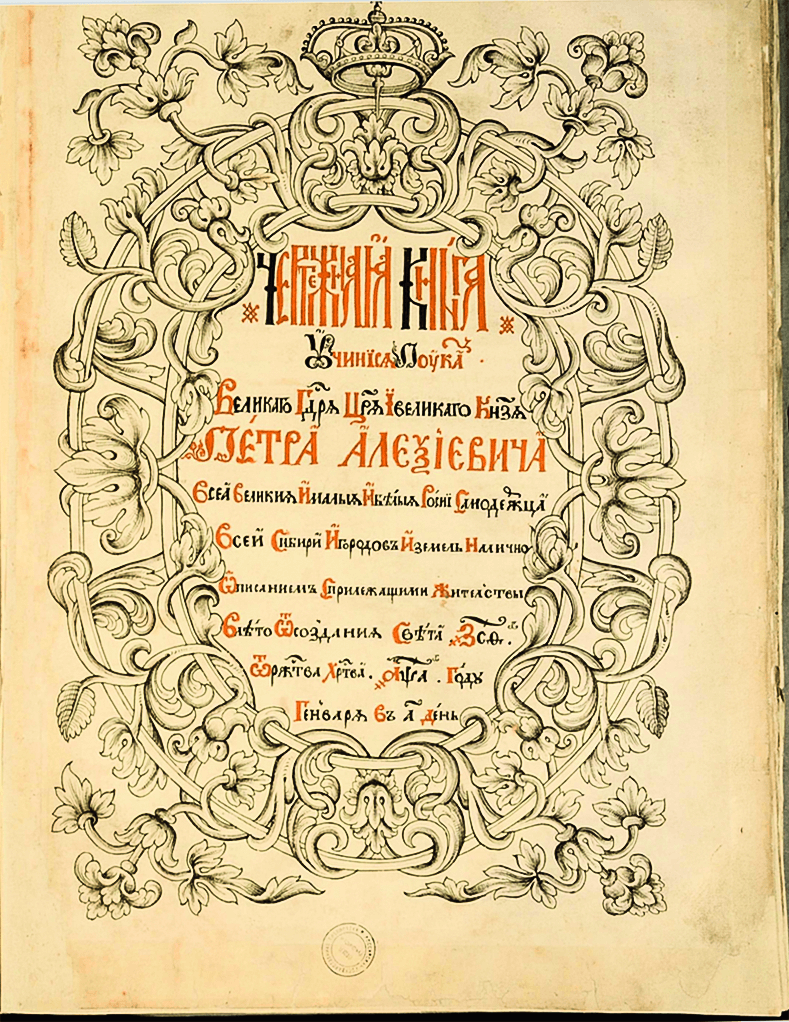 ЧЕРТЕЖНАЯ КНИГА
Учинися По указꙋ
Великаго Гдря Црѧ Ївеликаго Кнзѧ
ПЕТРА АЛЕѮІЕВИЧА
Всеѧ Великиѧ Ималыѧ Ибѣлыѧ Росиї Самодержца
Всей Сибири Игородовъ Иземель Налично
Ѡписаниемъ Сприлежащими Жителствы
Влѣто Ѿсоздания Свѣта ҂ЗСѲ.
Ѿржтва Хртва. ҂аѱа. Году
Генваря Въ а день